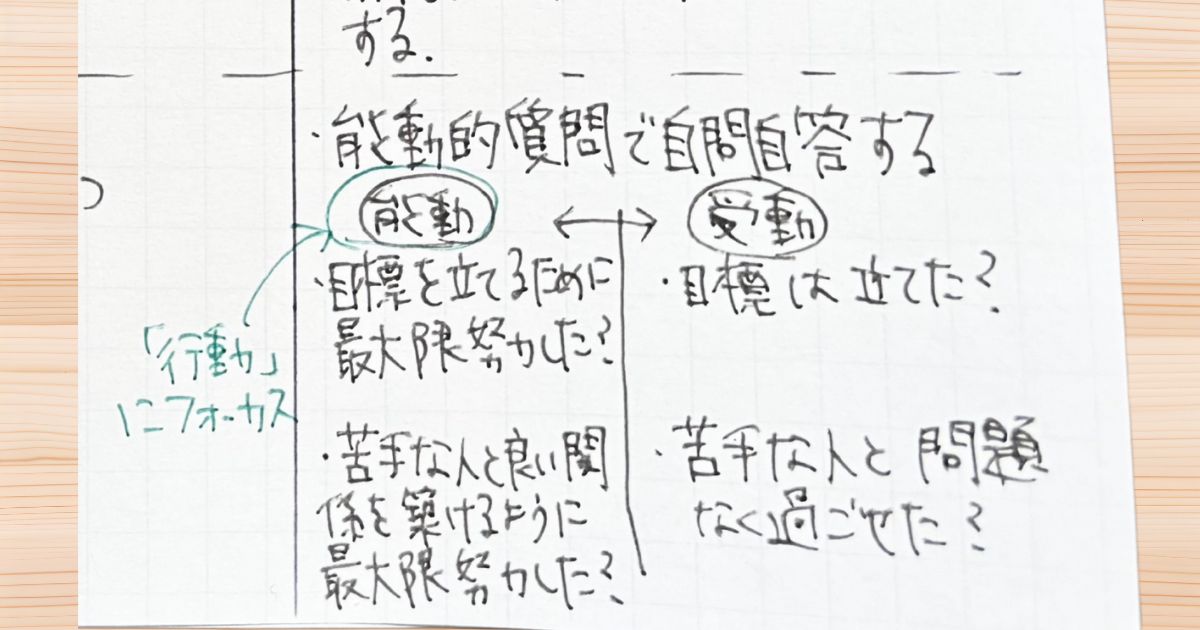 する.
・能動的質問で自問自答する
能動 ←→ 受動
・目標を立てるために
最大限努力した?
・目標は立てた?
「行動」
にフォーカス
・苦手な人と良い関
係を築けるように
最大限努力した?
・苦手な人と問題
なく過ごせた?